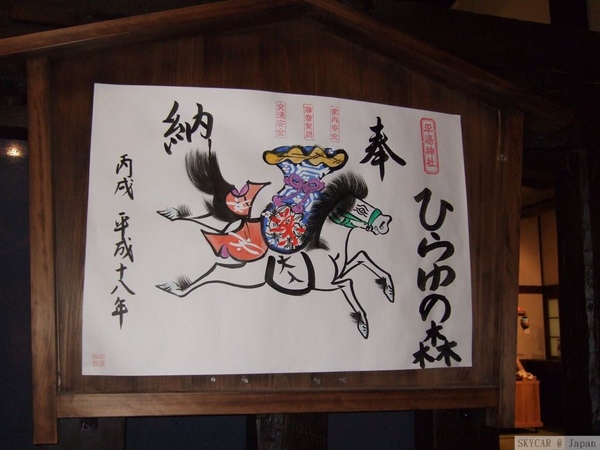 平湯神社
ひらゆの森
奉
家内安全
交通安全
納
大入
丙戌 平成十八年
SKYCAR @ Japan